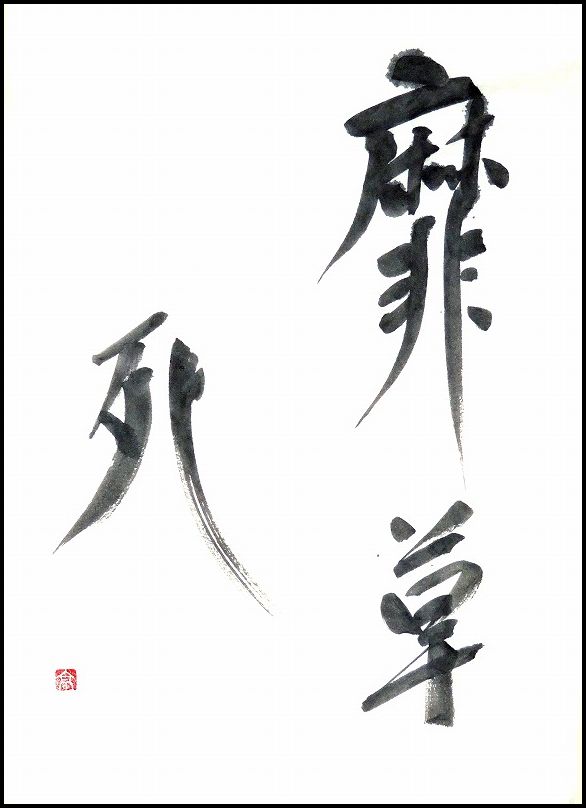 靡草
死